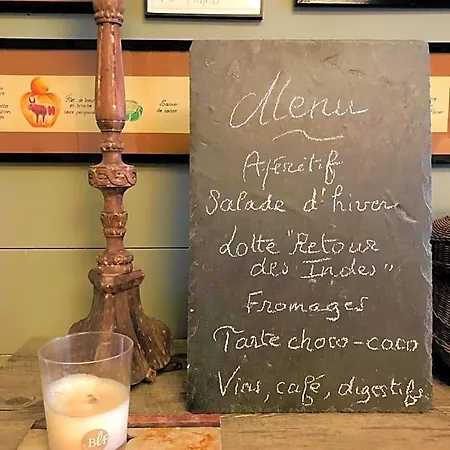 Menu
Apéritif
Salade d'hiver
Lotte "Retour
des Indes"
Fromages
Tarte choco-coco
Vins, café, digestifs